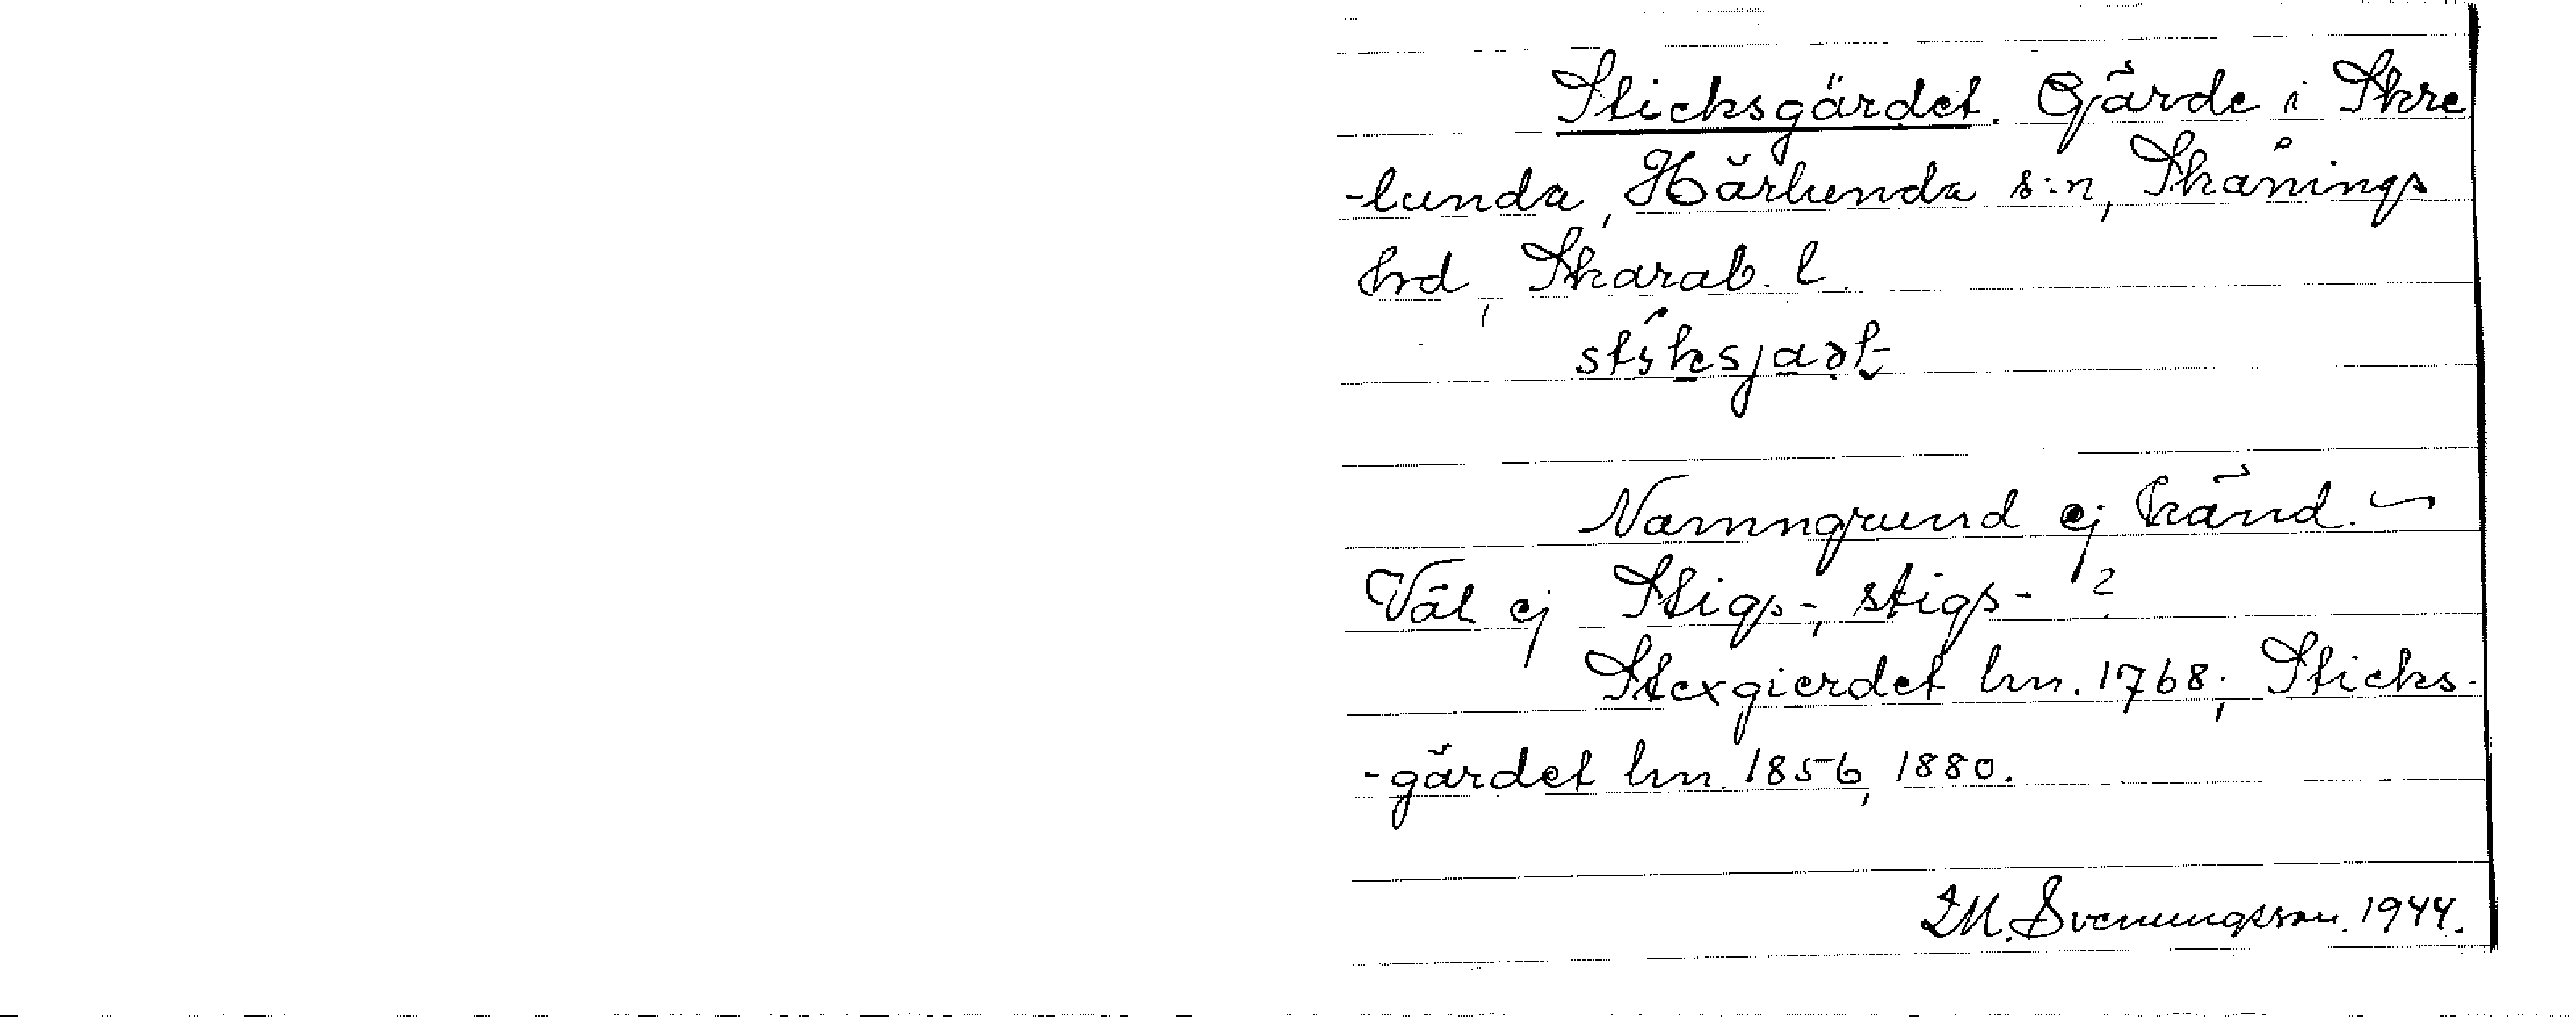 Sticksgärdet. Gärde i Skre
-lunda, Härlunda s:n, Skånings
hrd, Skarab. l.
Namngrund ej känd. –
Väl ej Stigs-, stigs- ?
Stexgierdet hm. 1768; Sticks-
-gärdet hm 1856, 1880.
M. Svenungsson. 1944.